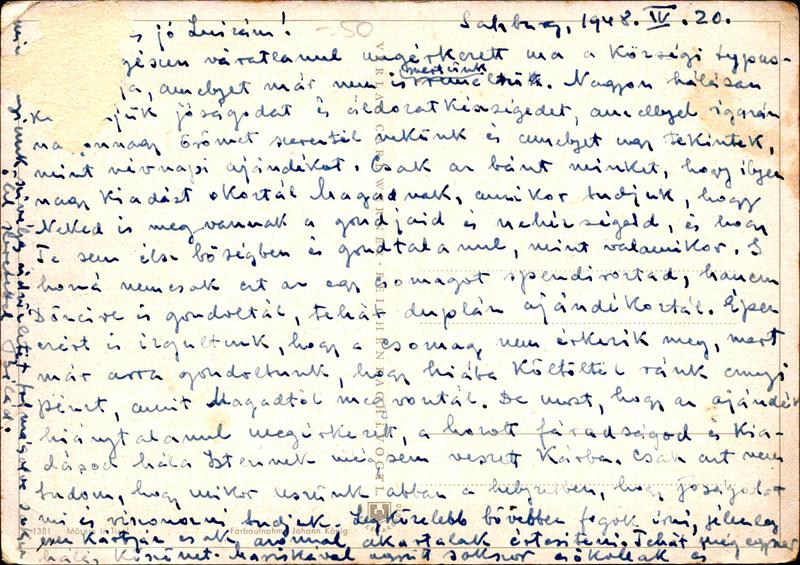 Salzburg, 1948. IV. 20.
s jó Luizám!
gésen váratlanul megérkezett ma a községi
ja, amelyet már nem is mertünk reméltük. Nagyon hálásan
jük jóságodat és áldozatkészségedet, amellyel igazán
na onnagy örömet szereztél nekünk és amelyet úgy tekintek,
mint névnapi ajándékot. Csak az bánt minket, hogy ilyen
nagy kiadást okoztál Magadnak, amikor tudjuk, hogy
Neked is megvannak a gondjaid és nehézségeid, és hogy
Te sem élsz bőségben és gondtalanul, mint valamikor. S
hozzá nemcsak ezt az egy csomagot spendíroztad, hanem
is gondoltál, tehát duplán ajándékoztál. Éppen
ezért is izgultunk, hogy a csomag nem érkezik meg, mert
már arra gondoltunk, hogy hiába költöttél ránk ennyi
pénzt, amit Magadtól megvontál. De most, hogy az ajándék
hiánytalanul megérkezett, a hozott fáradságod és kia-
dásod hála Istennek mégsem veszett kárba. Csak azt nem
tudom, hogy mikor leszünk abban a helyzetben, hogy jóságodat
mi is viszonozni tudjuk. Legközelebb bővebben fogok írni, jelenleg
ezen kártyán csak azonnal akartalak értesíteni. Tehát még egyszer
hálás köszönet. Mariskával együtt sokszor csókollak és
1381
Farbaufnahme Johann König